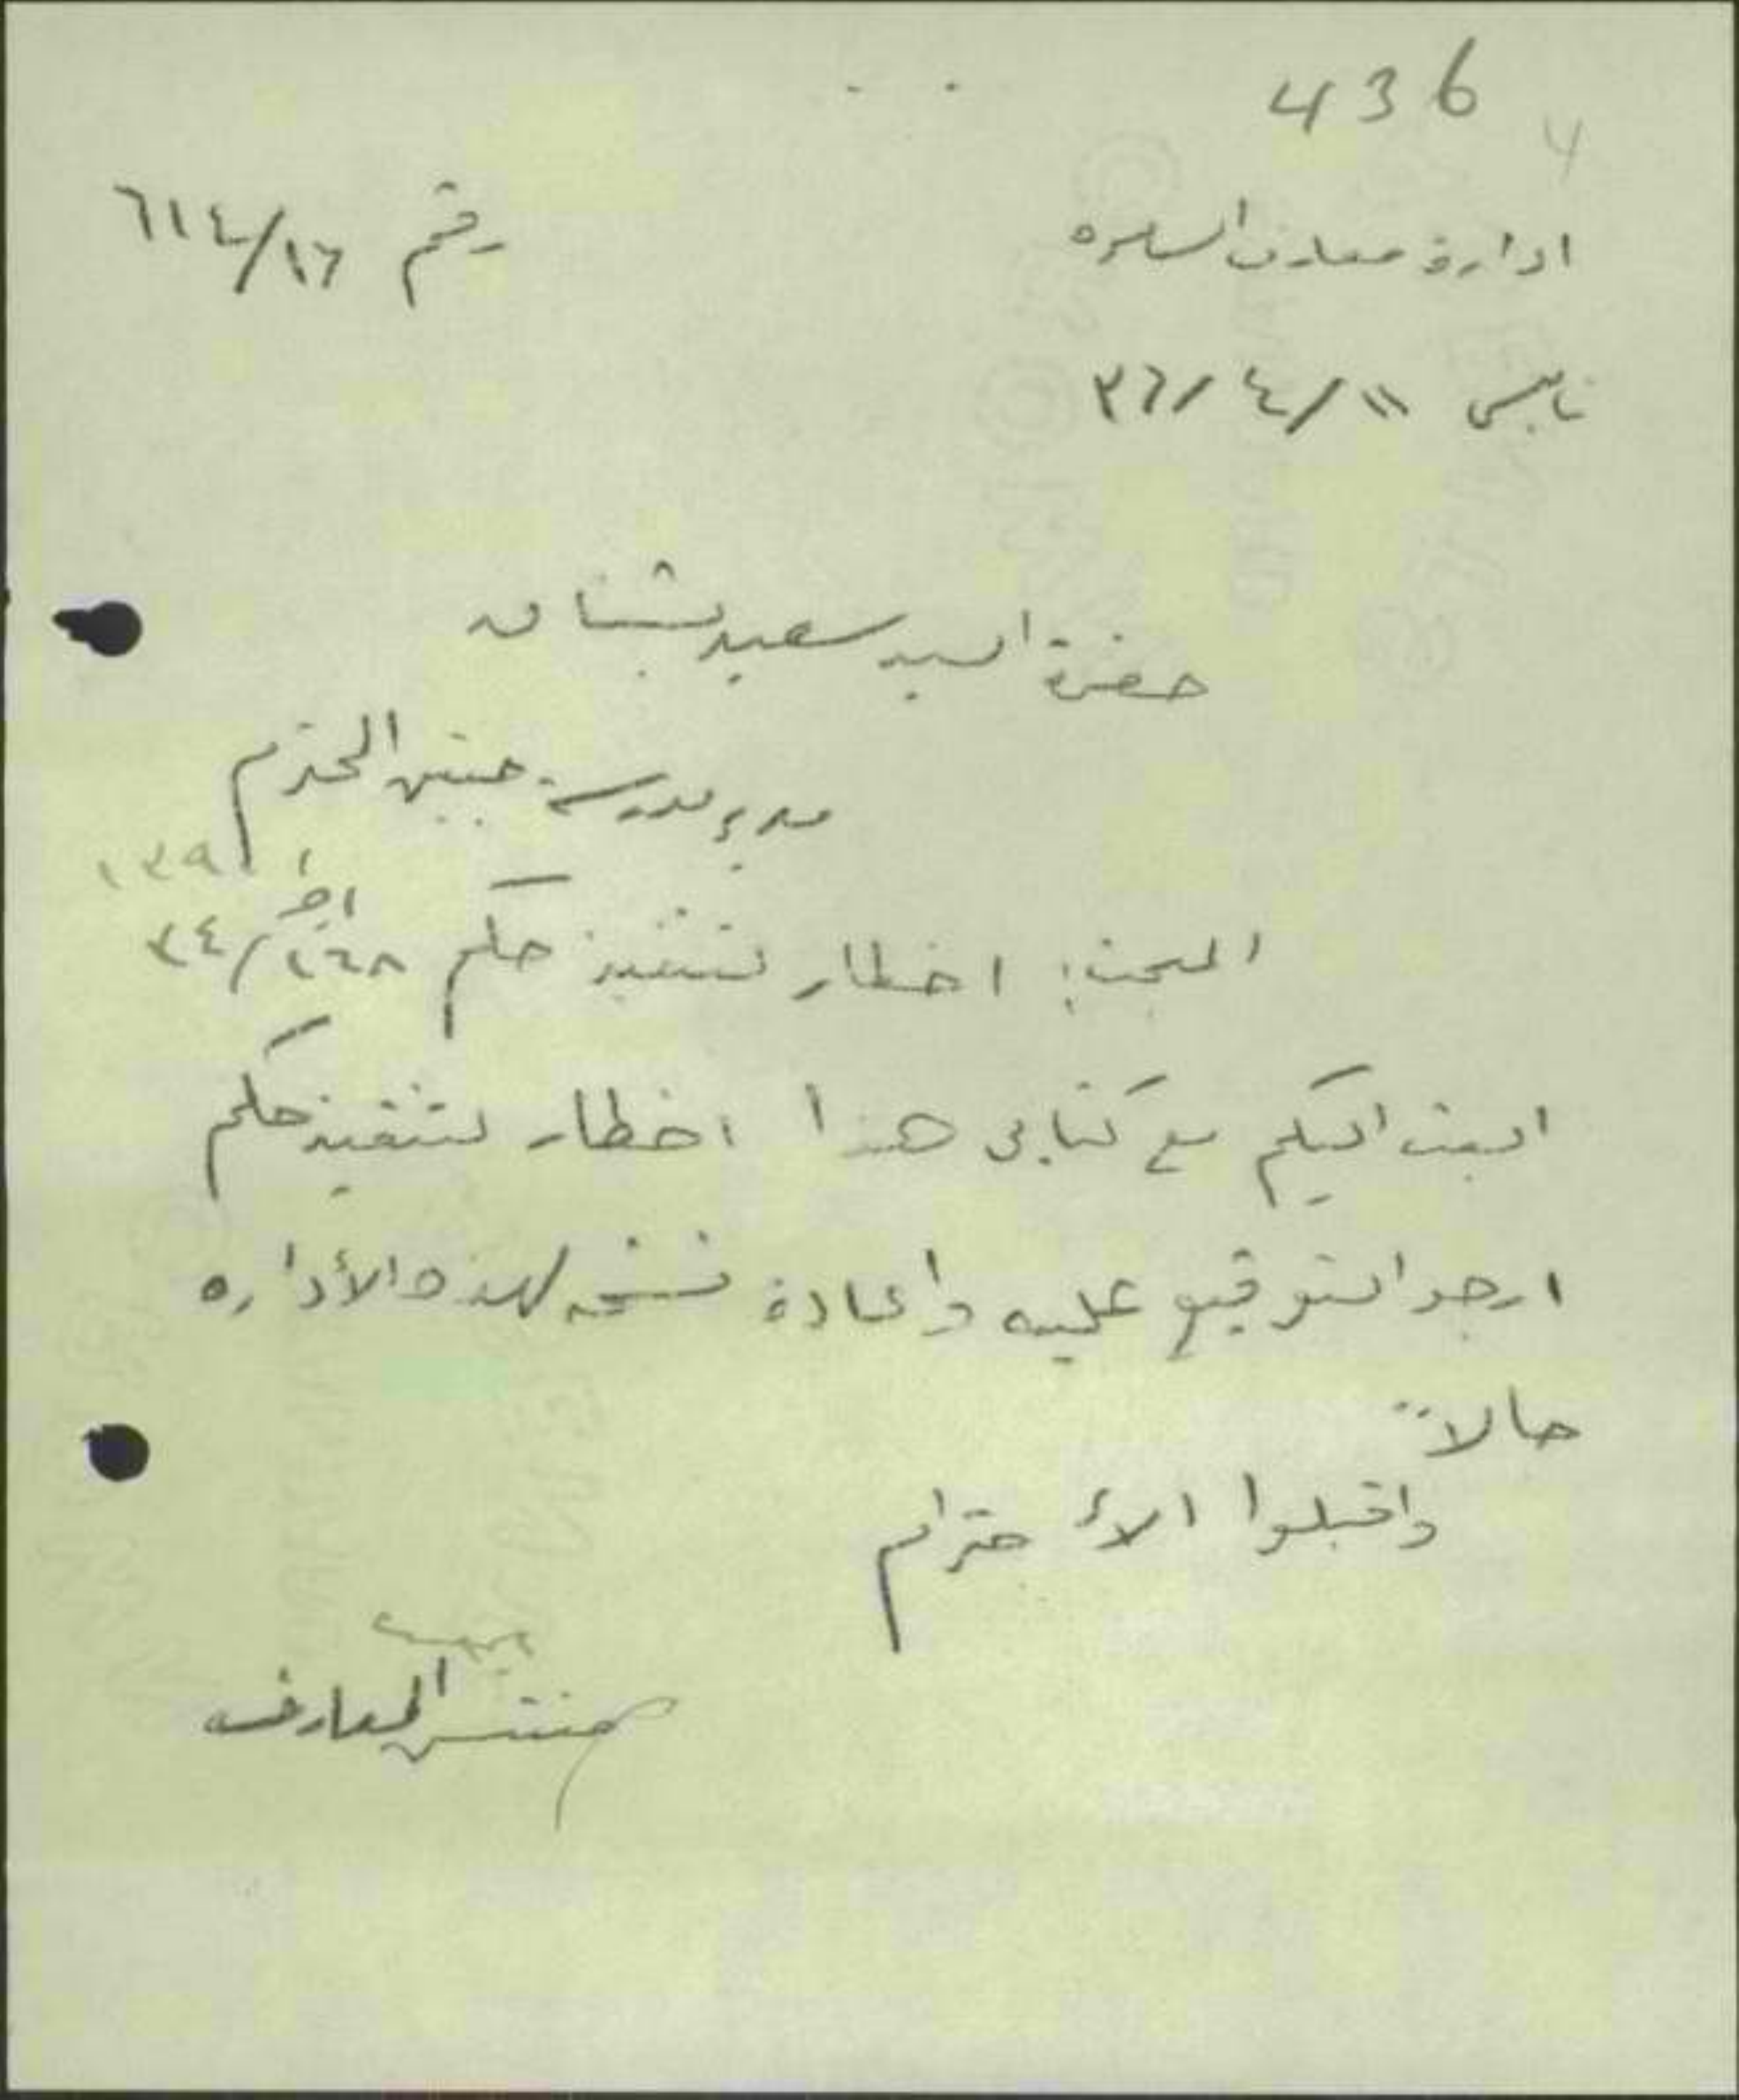 436
ادارة معارف السامره
رقم ٦١٤/١٦
نابلس ١١/ ٤ /٣٦
حضرة السيد سعيد بشناق
مدير مدرسة جنين المحترم
المبحث: اخطار لتنفيذ حكم ٢٦٨/٣٤
ابعث اليكم مع كتابى هذا اخطار لتنفيذ حكم
ارجو التوقيع عليه واعادة نسخه لهذه الأداره
حالاً
واقبلوا الأحترام
مفتش المعارف